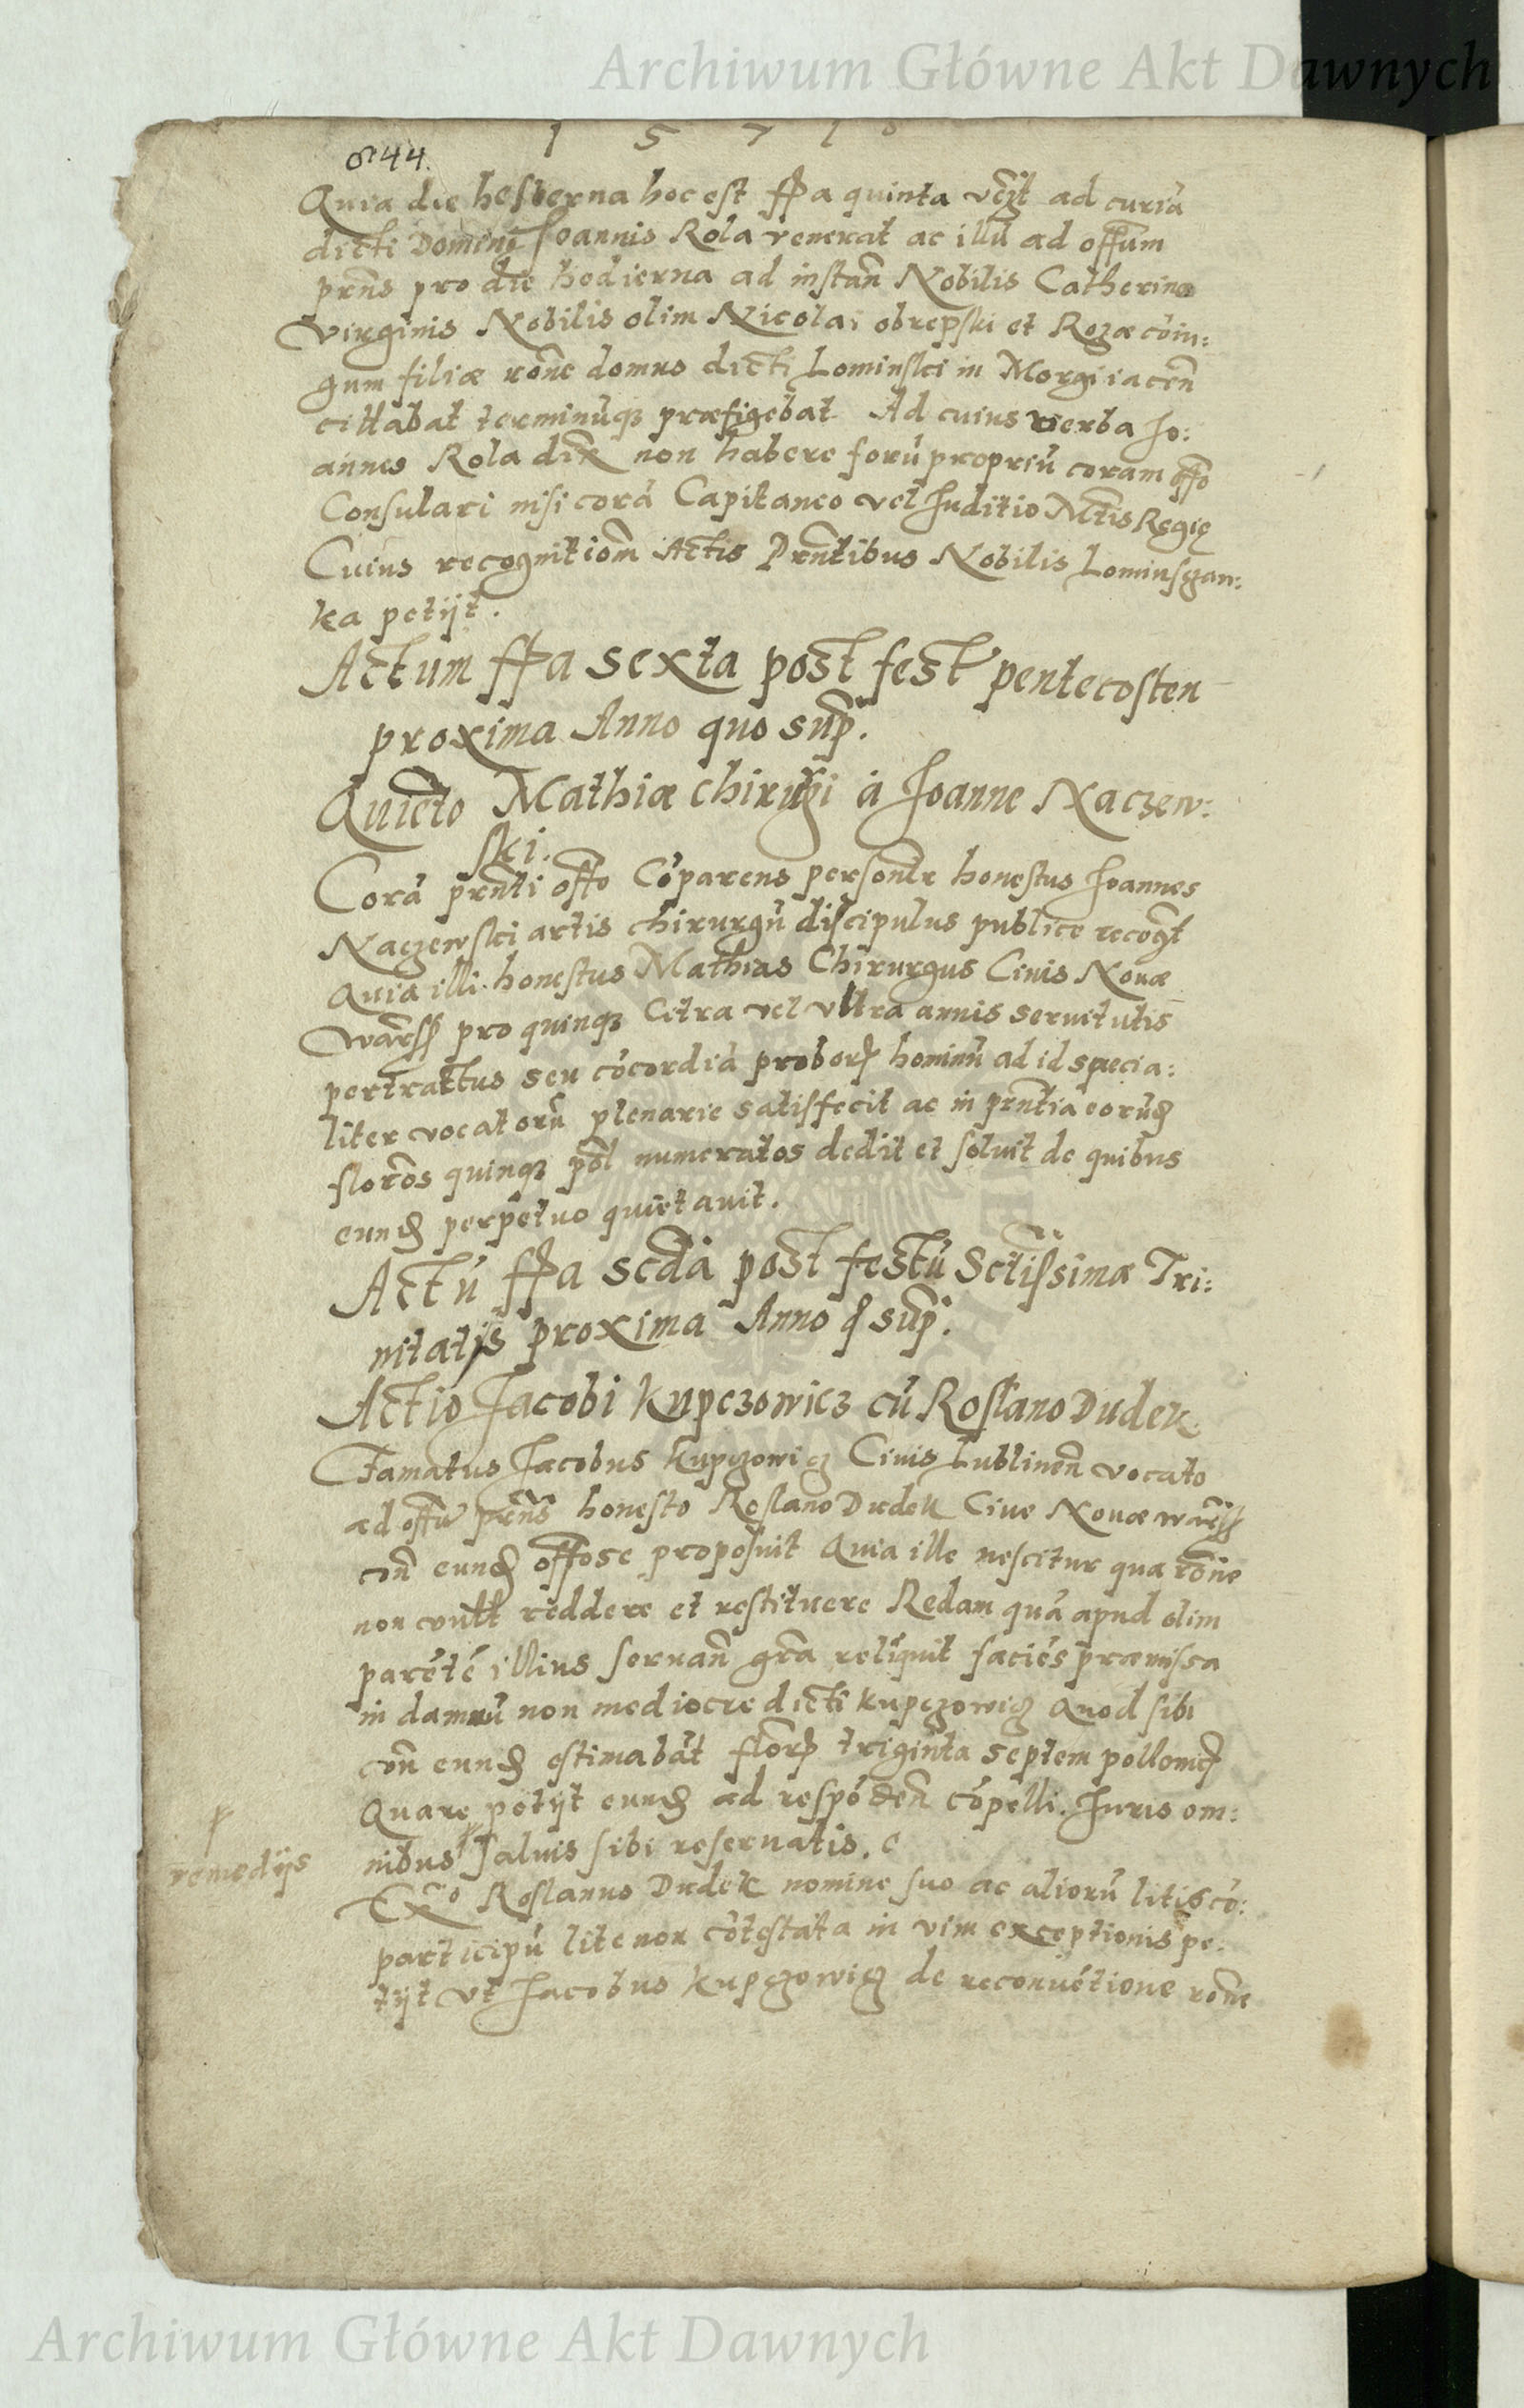 Archiwum Główne Akt Dawnych
1 5 7 1
44.
Quia die hesterna hoc est ffa quinta ad curiã
dicti Domini Joannis Rola venerat ac illũ ad offum
prñs pro die hodierna ad instañ Nobilis Catherinæ
Virginis Nobilis olim Nicolai obrepski et Rozæ cõiu:
gum filiæ rõne domus dicti Lominski in Morgi iaceñ
cittabat terminũqꝫ præfigebat Ad cuius verba Jo:
annes Rola non habere forũ propriũ coram offo
Consulari nisi corã Capitaneo vel Juditio Mtis Regię
Cuius recognitiom̃ Actis Prñtibus Nobilis Lominsgan:
ka petijt.
Actum ffa sexta post fest pentecosten
proxima Anno quo sup̃.
Quieto Mathiæ chirurgi à Joanne Naczew:
ski.
Corã prñti offo Cõparens personlr honestus Joannes
Naczewski artis chirurgũ discipulus publice recogt
Quia illi honestus Mathias Chirurgus Ciuis Nouæ
warss pro quinqꝫ Citra vel vltra annis seruitutis
pertrattus seu cõcordiã probor hominũ ad id specia:
liter vocatorũ plenarie satisfecit ac in prñtia eorũd
florõs quinqꝫ pol numeratos dedit et soluit de quibus
eund perpetuo quietauit.
Actũ ffa scda post festũ Sctissimæ Tri:
nitatis proxima Anno q sup̃.
Actio Jacobi Kupczowicz cũ Roslano Dudek
Famatus Jacobus Kupczowicz Ciuis Lublineñ vocato
ad offũ prñs honesto Roslano Dudek Ciue Nouæ warss
coñ eund offose proposuit Quia ille nescitur qua rõne
non vult reddere et restituere Redam quã apud olim
parẽtẽ illius seruañ gra reliquit faciẽs præmissa
in damnũ non mediocre dicti Kupczowicz Quod sibi
coñ eund estimabat flor triginta septem
Quare petijt eund ad respõdeñ cõpelli. Juris om:
nibus saluis sibi reseruatis.
remedijs
Exo Roslanus Dudek nomine suo ac aliorũ litis cõ:
participũ lite non cõtestata in vim exceptionis pe:
tijt vt Jacobus Kupczowicz de reconuẽtione rõne
Archiwum Główne Akt Dawnych